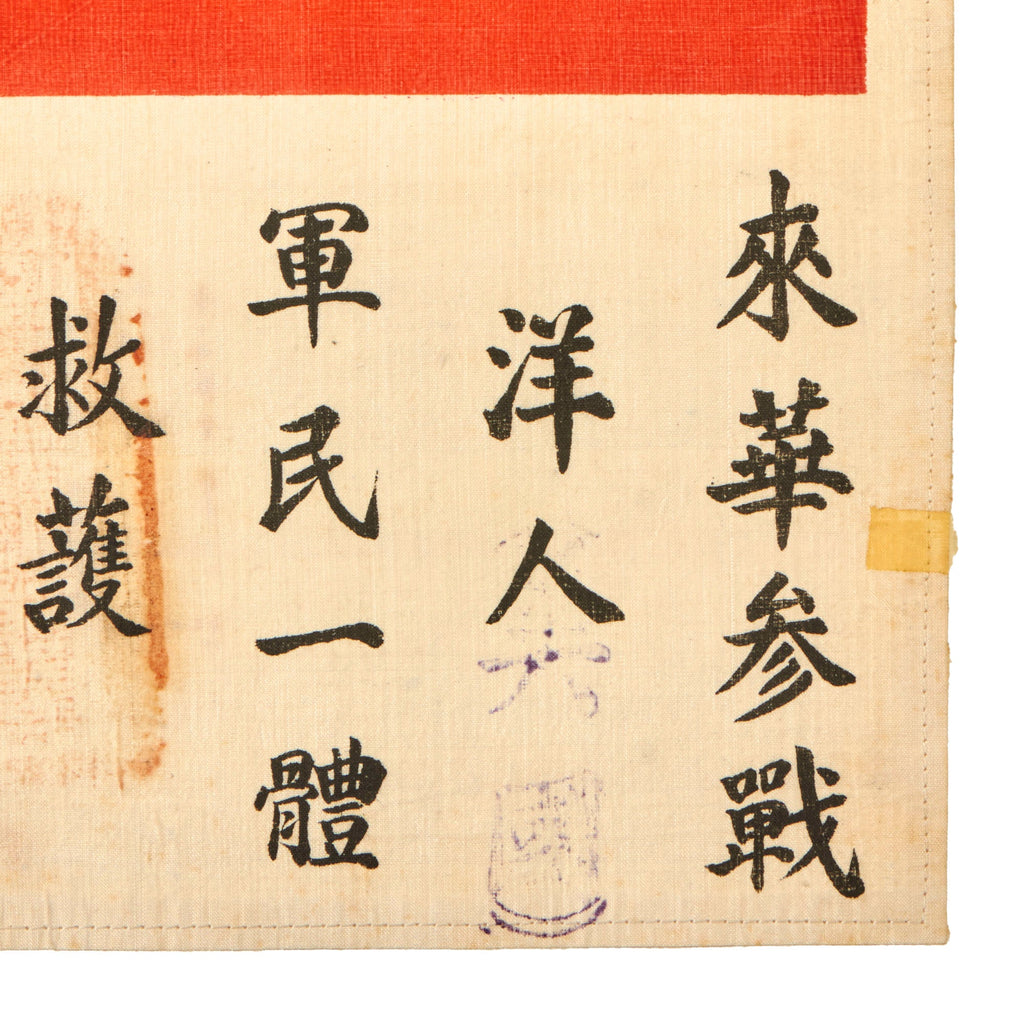 來華参戰
洋人
軍民一體
救護